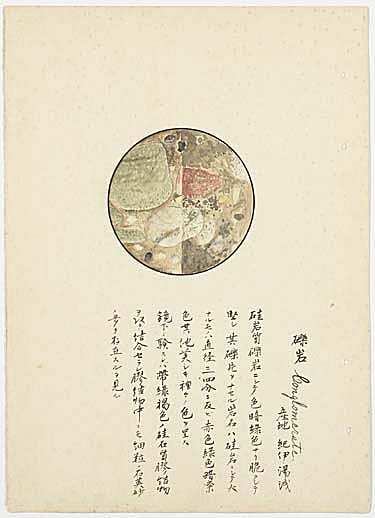 礫岩 Conglomerate
産地 紀伊湯浅
硅岩質礫岩ニシテ色暗緑色ナリ脆シテ
堅シ其礫片ヲナセル岩石ハ硅岩ニシテ大
ナルモノハ直径三四分ニ及ビ赤色緑色暗紫
色其他美シキ種々ノ色ヲ呈ス
鏡下ニ験スルニ帯緑褐色ノ硅石質膠結物
ヲ以テ結合セラレ膠結物中ニモ細粒石英砂
ノ夥多存在スルヲ見ル